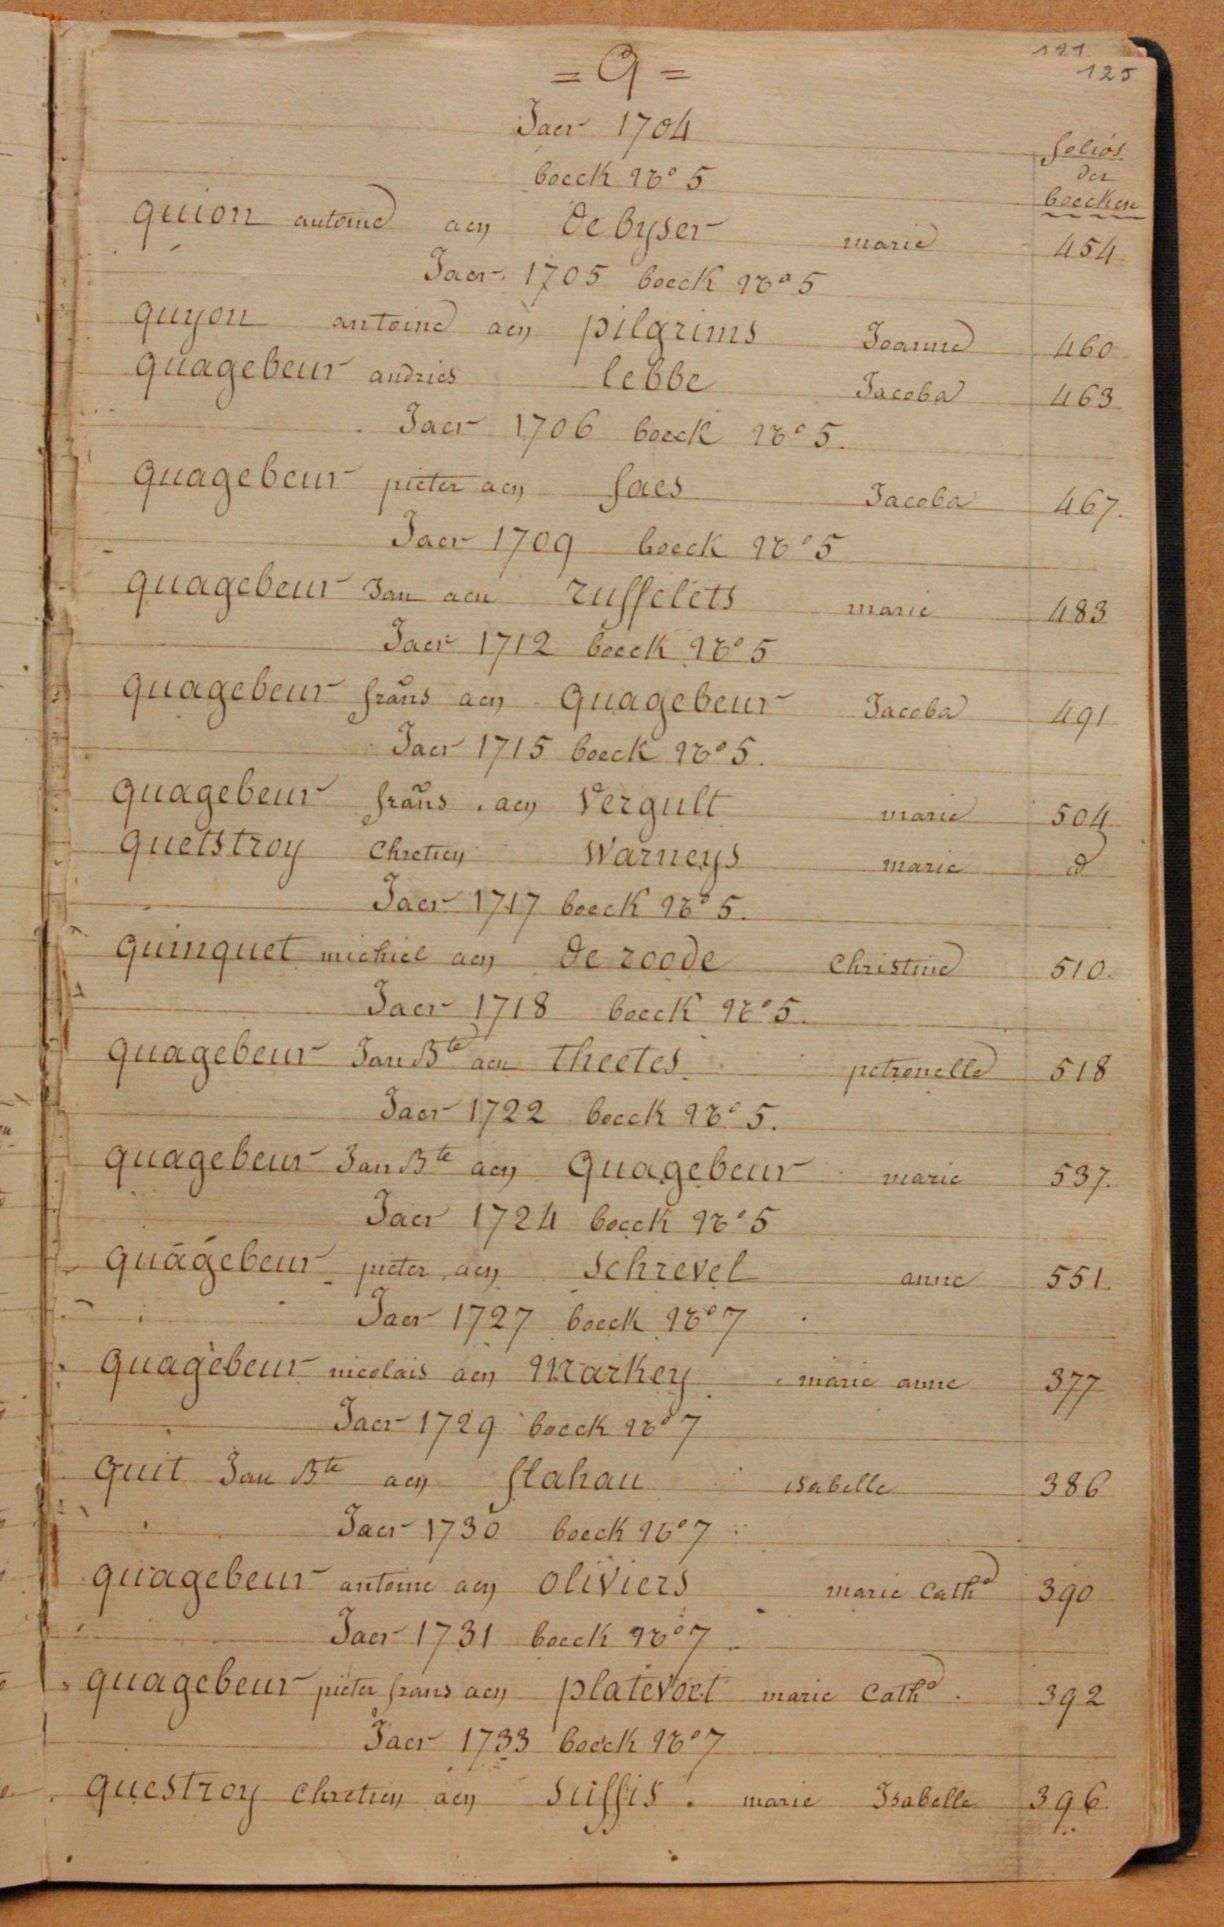 121
125
= Q =
Jaer 1704
folios
der
boecken
boeck No 5
quion antoine aen de byser marie 454
Jaer 1705 boeck No 5
quyon antoine aen pilgrims Joanne 460
quagebeur andries lebbe Jacoba 463
Jaer 1706 boeck No 5.
quagebeur pieter aen faes Jacoba 467.
Jaer 1709 boeck No 5
quagebeur Jan aen ruffelets marie 483
Jaer 1712 boeck No 5
quagebeur frans aen quagebeur Jacoba 491
Jaer 1715 boeck No 5.
quagebeur frans aen Vergult marie 504
quetstroy Chretien Warneys marie d
Jaer 1717 boeck No 5.
quinquet michiel aen de roode Christine 510.
Jaer 1718 boeck No 5.
quagebeur Jan Bte aen theetes petronelle 518
Jaer 1722 boeck No 5.
quagebeur Jan Bte aen quagebeur marie 537.
Jaer 1724 boeck No 5
quagebeur pieter aen schrevel anne 551.
Jaer 1727 boeck No 7
quagebeur nicolais aen Markey marie anne 377
Jaer 1729 boeck No 7
quit Jan Bte aen flahau isabelle 386
Jaer 1730 boeck No 7
quagebeur antoine aen oliviers marie Cathe 390
Jaer 1731 boeck No 7
quagebeur pieter frans aen platevoet marie Cathe. 392
Jaer 1733 boeck No 7
questroy Chretien aen suffis. marie Isabelle 396